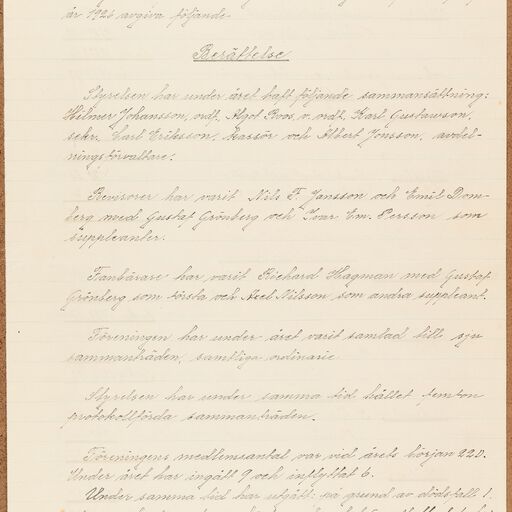 år 1926 avgiva följande
Berättelse
Styrelsen har under året haft följande sammansättning:
Hilmer Johansson, ordf. Algot Roos, v. ordf. Karl Gustawson,
sekr. Carl Eriksson, kassör och Albert Jonsson, avdel-
ningsförvaltare.
Revisorer har varit Nils F. Jansson och Emil Dom-
berg med Gustaf Grönberg och Ivar Em. Persson som
suppleanter.
Fanbärare har varit Richard Hagman med Gustaf
Grönberg som första och Axel Nilsson som andra suppleant.
Föreningen har under året varit samlad till sju
sammanträden, samtliga ordinarie
Styrelsen har under samma tid hållet femton
protokollförda sammanträden.
Föreningens medlemsantal var vid årets början 220.
Under året har ingått 9 och inflyttat 6.
Under samma tid har utgått: på grund av dödsfall 1.